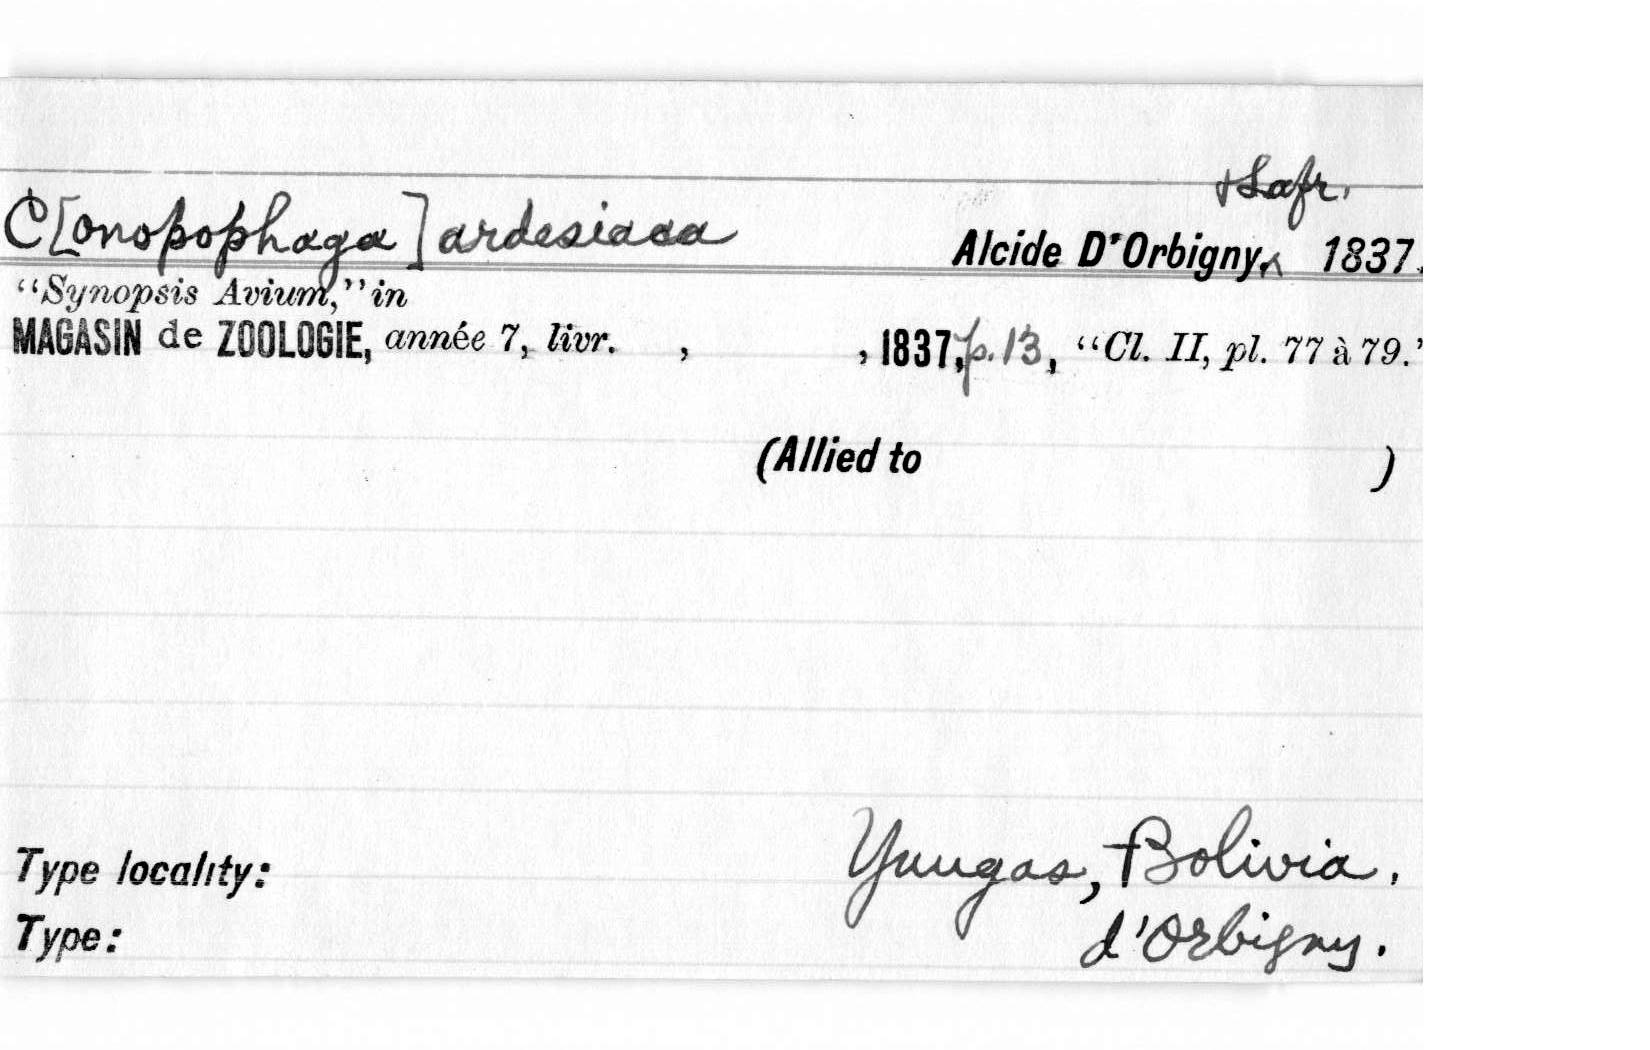 & Lafr.
C[onopophaga] ardesiaca Alcide D'Orbigny, 1837.
"Synopsis Avium," in
MAGASIN de ZOOLOGIE, année 7, livr. , , 1837, p. 13, "Cl. II, pl. 77 à 79."
(Allied to )
Type locality: Yungas, Bolivia.
Type: d'Orbigny.